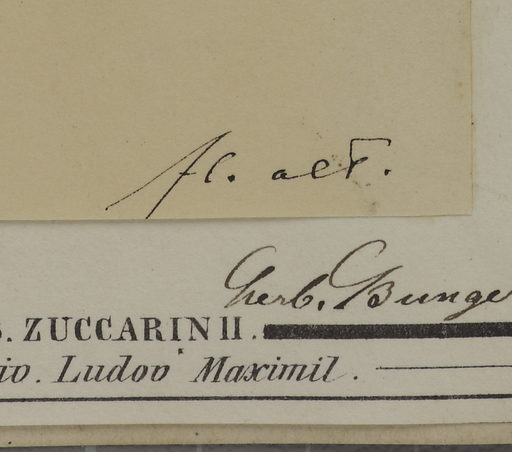 fl. alt.
Herb. Bunge
. ZUCCARINII.
io. Ludov Maximil.